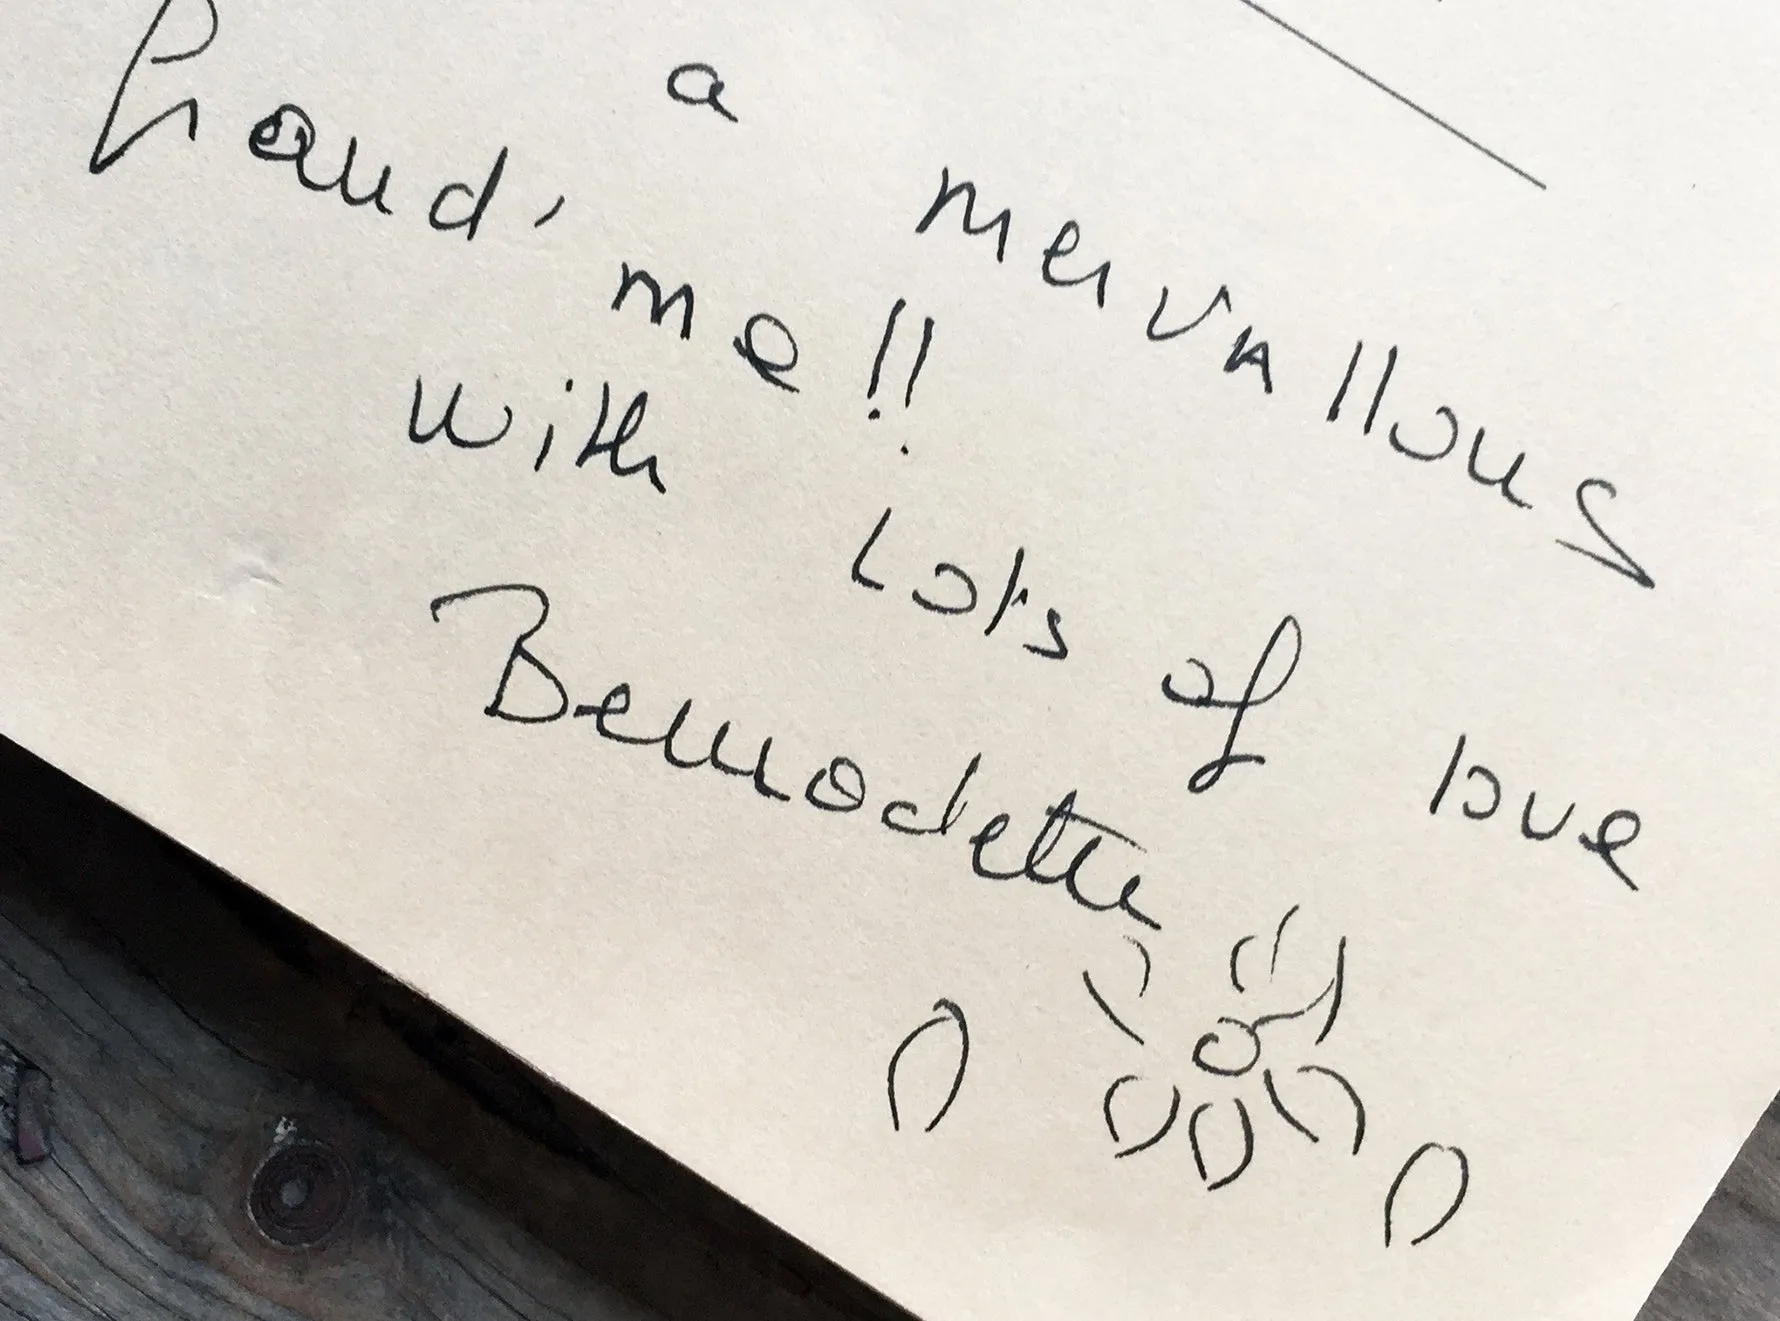 a mervallous
Grand'me!!
with lots of love
Bernadette